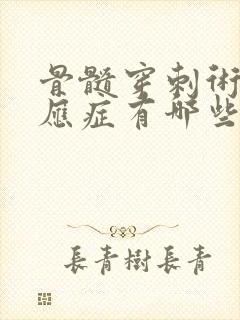 骨髓穿刺術
應症有哪些
長青樹長青